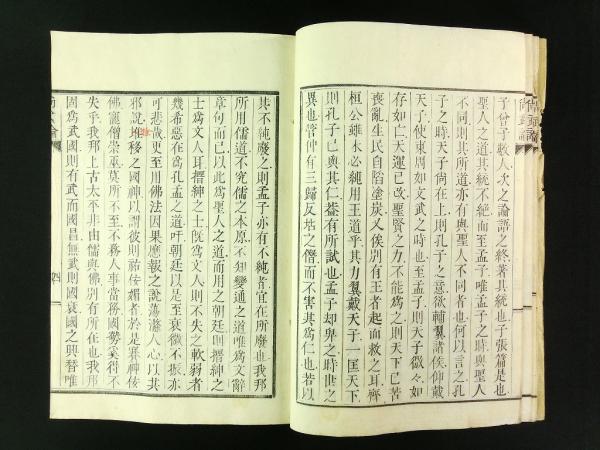 子曾子敎人次之論語之終著其統也子張篇是也
聖人之道其統不絕而至孟子唯孟子之時與聖人
不同則其所道亦有與聖人不同者也何以言之孔
子之時天子尙在上則孔子之意欲輔翼諸侯仰戴
天子使東周如文武之時也至孟子則天子微々如
存如亡天運已改聖賢之力不能爲之則天下已苦
喪亂生民自陷塗炭又俟別有王者起而救之耳齊
桓公雖未必純用王道乎其力翼戴天子一匡天下
則孔子已與其仁葢有所試也孟子却卑之時世之
異也管仲有三歸反坫之僭而不害其爲仁也若以
其不純廢之則孟子亦有不純者宜在所廢也我邦
所用儒道不究儒之本原不知變通之道唯爲文辭
章句而已以此爲聖人之道而用之朝廷則搢紳之
士爲文人耳搢紳之士旣爲文人則不失之軟弱者
幾希惡在爲孔孟之道吁朝廷以是至衰微不振亦
可悲歲更至用佛法因果應報之說蕩盪人心以其
邪說推移之國神以謂彼則祐侫媚者於是寡神侫
佛寵僧崇巫莫所不至不務人事當務國勢奚得不
失乎我邦上古太平非由儒與佛別有所在也我也
固爲武國則有武而國昌無武則國衰國之興替唯